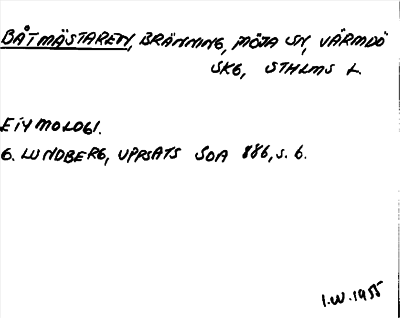 BÅTMÄSTAREN, BRÄNNING, MÖJA SN, VÄRMDÖ
SKG, STHLMS L.
ETYMOLOGI.
G. LUNDBERG, UPPSATS SOA 886, s. 6.
I.W. 1955